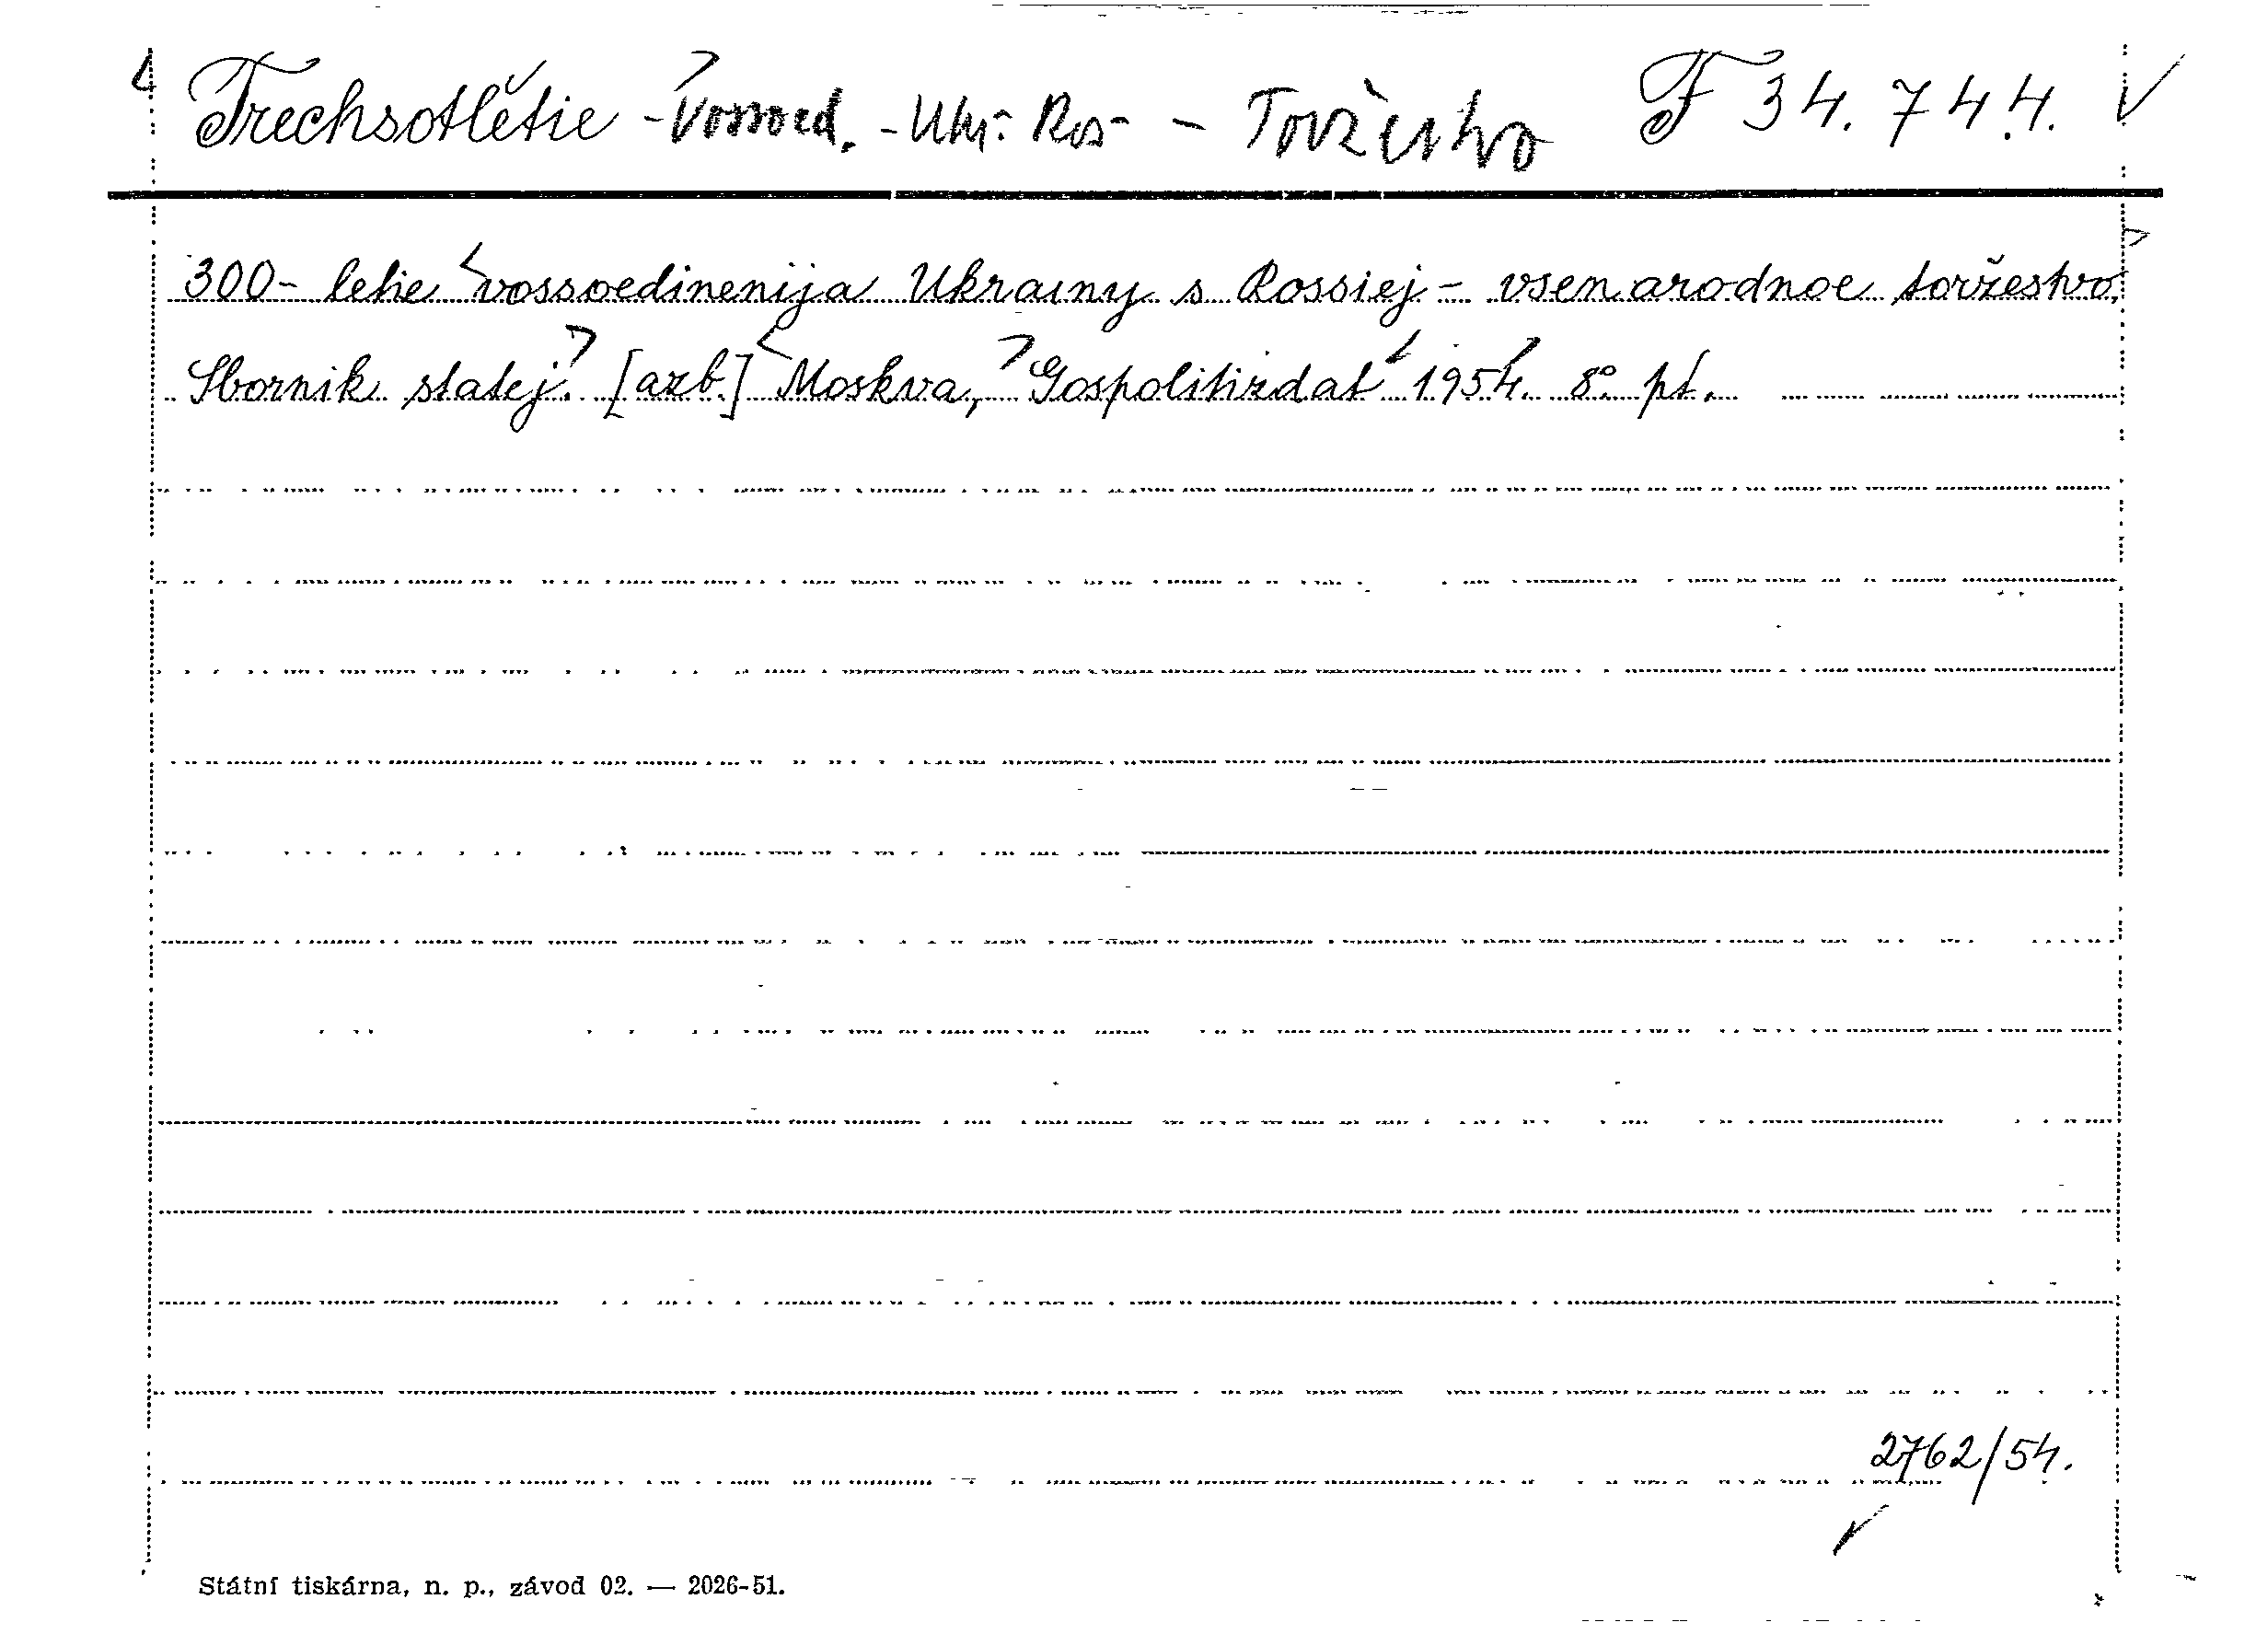 Trechsotlětie - Vossoed. - Ukr. Ros - Toržestvo F 34.744.
300-letie vossoedinenija Ukrainy s Rossiej - vsenarodnoe toržestvo.
Sbornik statej. [azb.] Moskva, Gospolitizdat 1954. 8° pt.
2762/54.
Státní tiskárna, n. p., závod 02. — 2026-51.